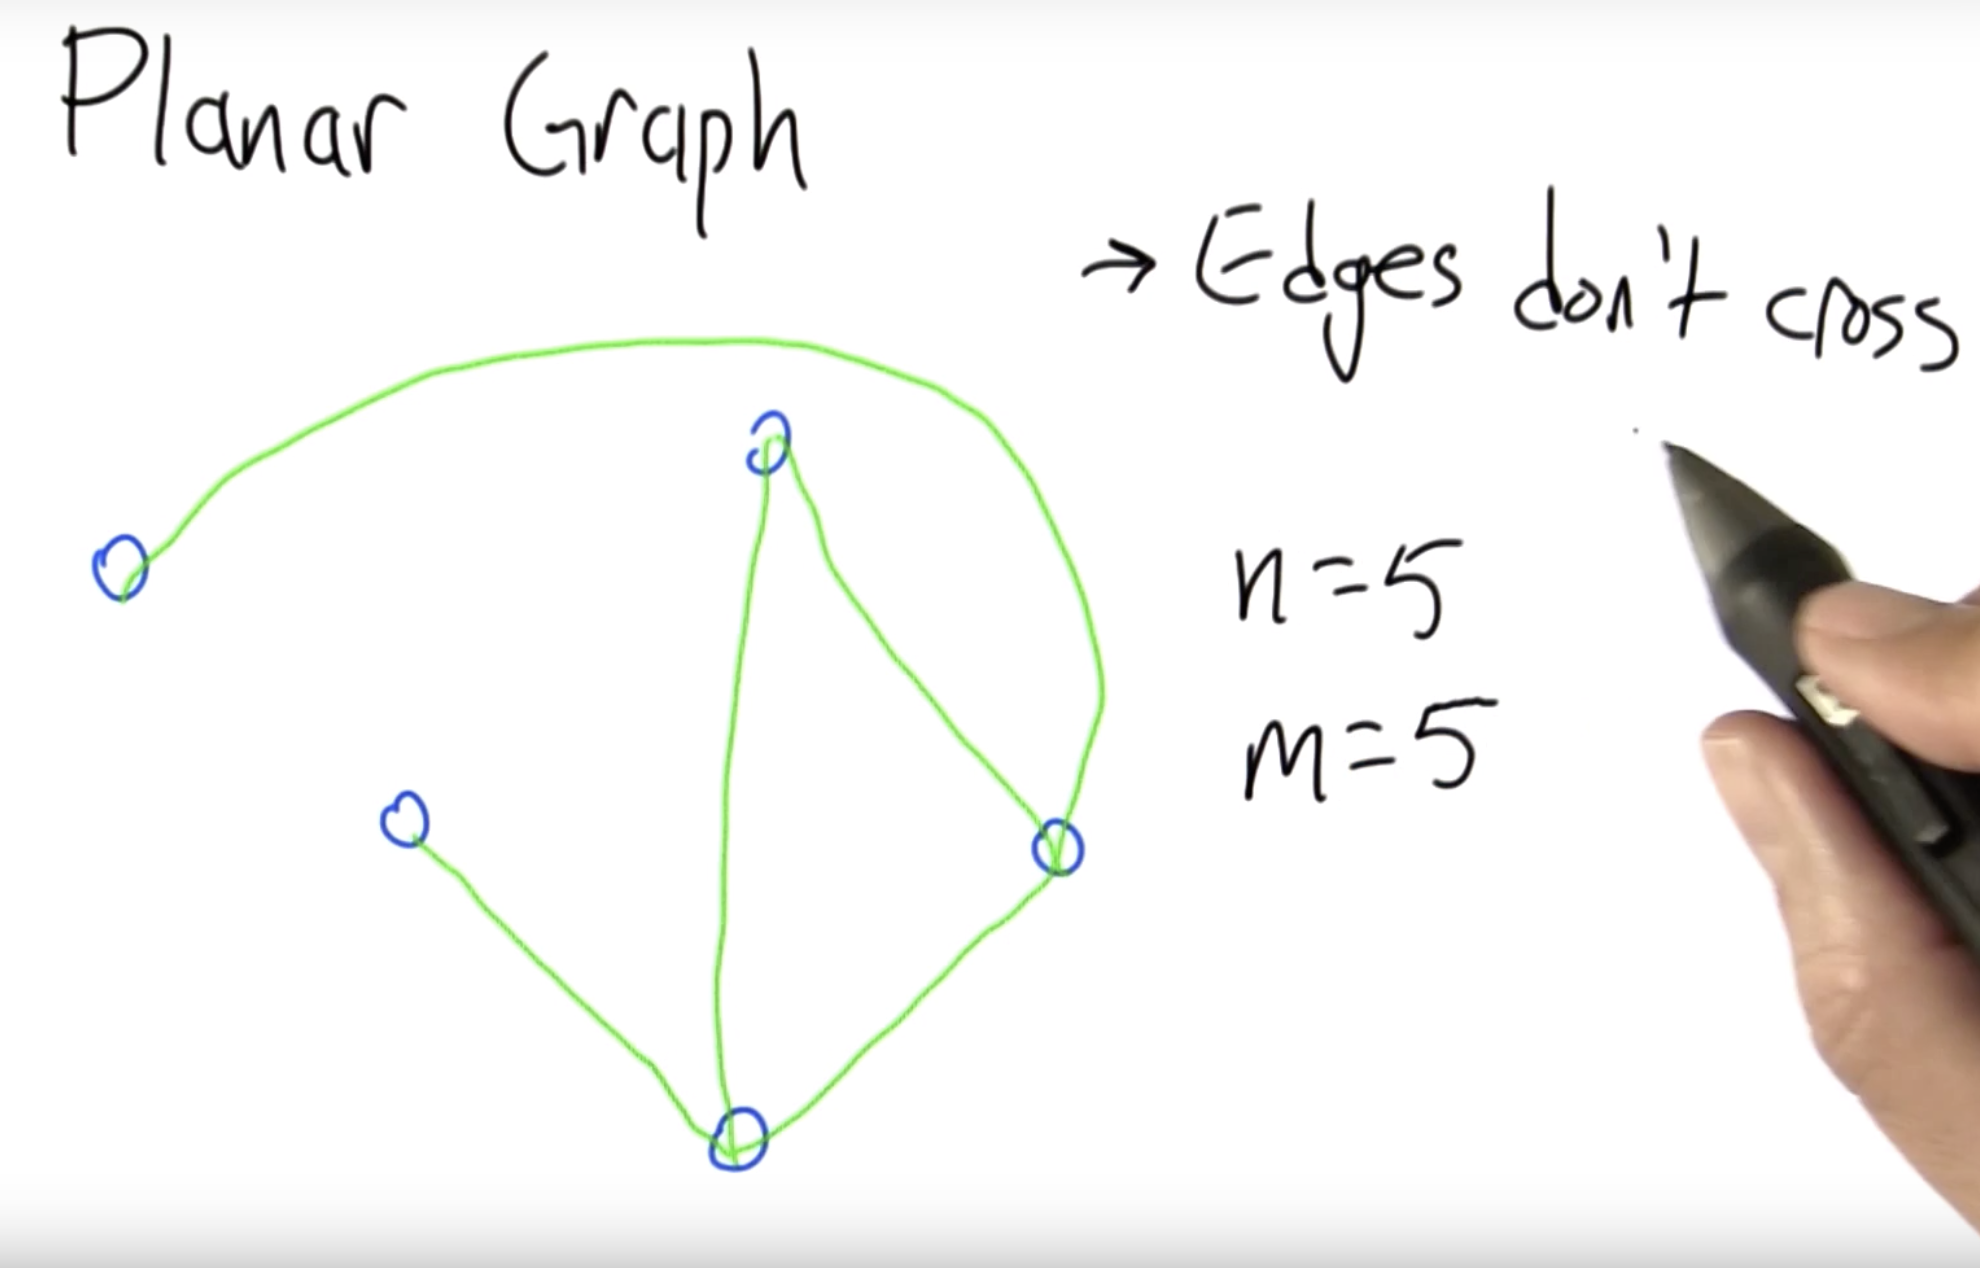 Planar Graph
→ Edges don't cross
n=5
m=5